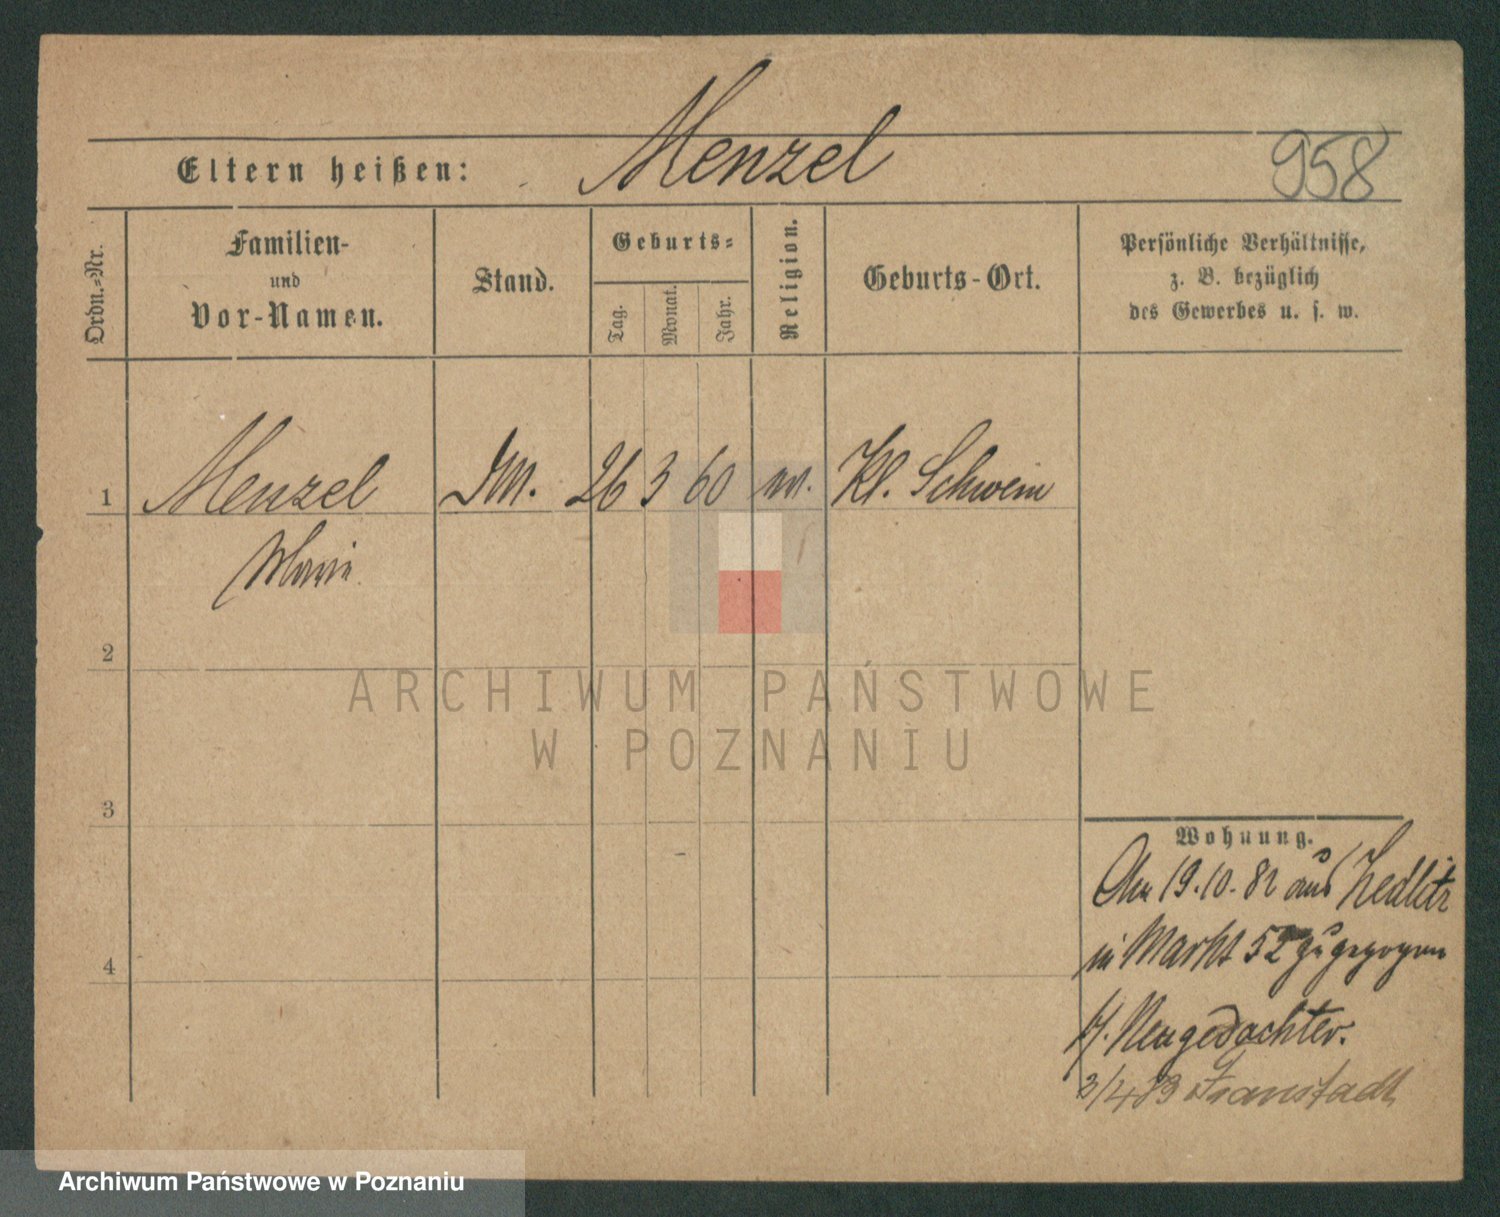 Menzel
Eltern heißen:
958
Ordn.-Nr.
Familien-
und
Vor-Namen.
Stand.
Geburts-
Tag.
Monat.
Jahr.
Religion.
Geburts-Ort.
Persönliche Verhältnisse,
z. B. bezüglich
des Gewerbes u. s. w.
1 Menzel DM. 26 3 60 Kl. Schwein
Marie
2
3
4
Wohnung.
Am 19.10.82 aus Zedlitz
in Markt 52 zugezogen
Neugedachter.
3/4 83 Fraustadt
ARCHIWUM PAŃSTWOWE
W POZNANIU
Archiwum Państwowe w Poznaniu